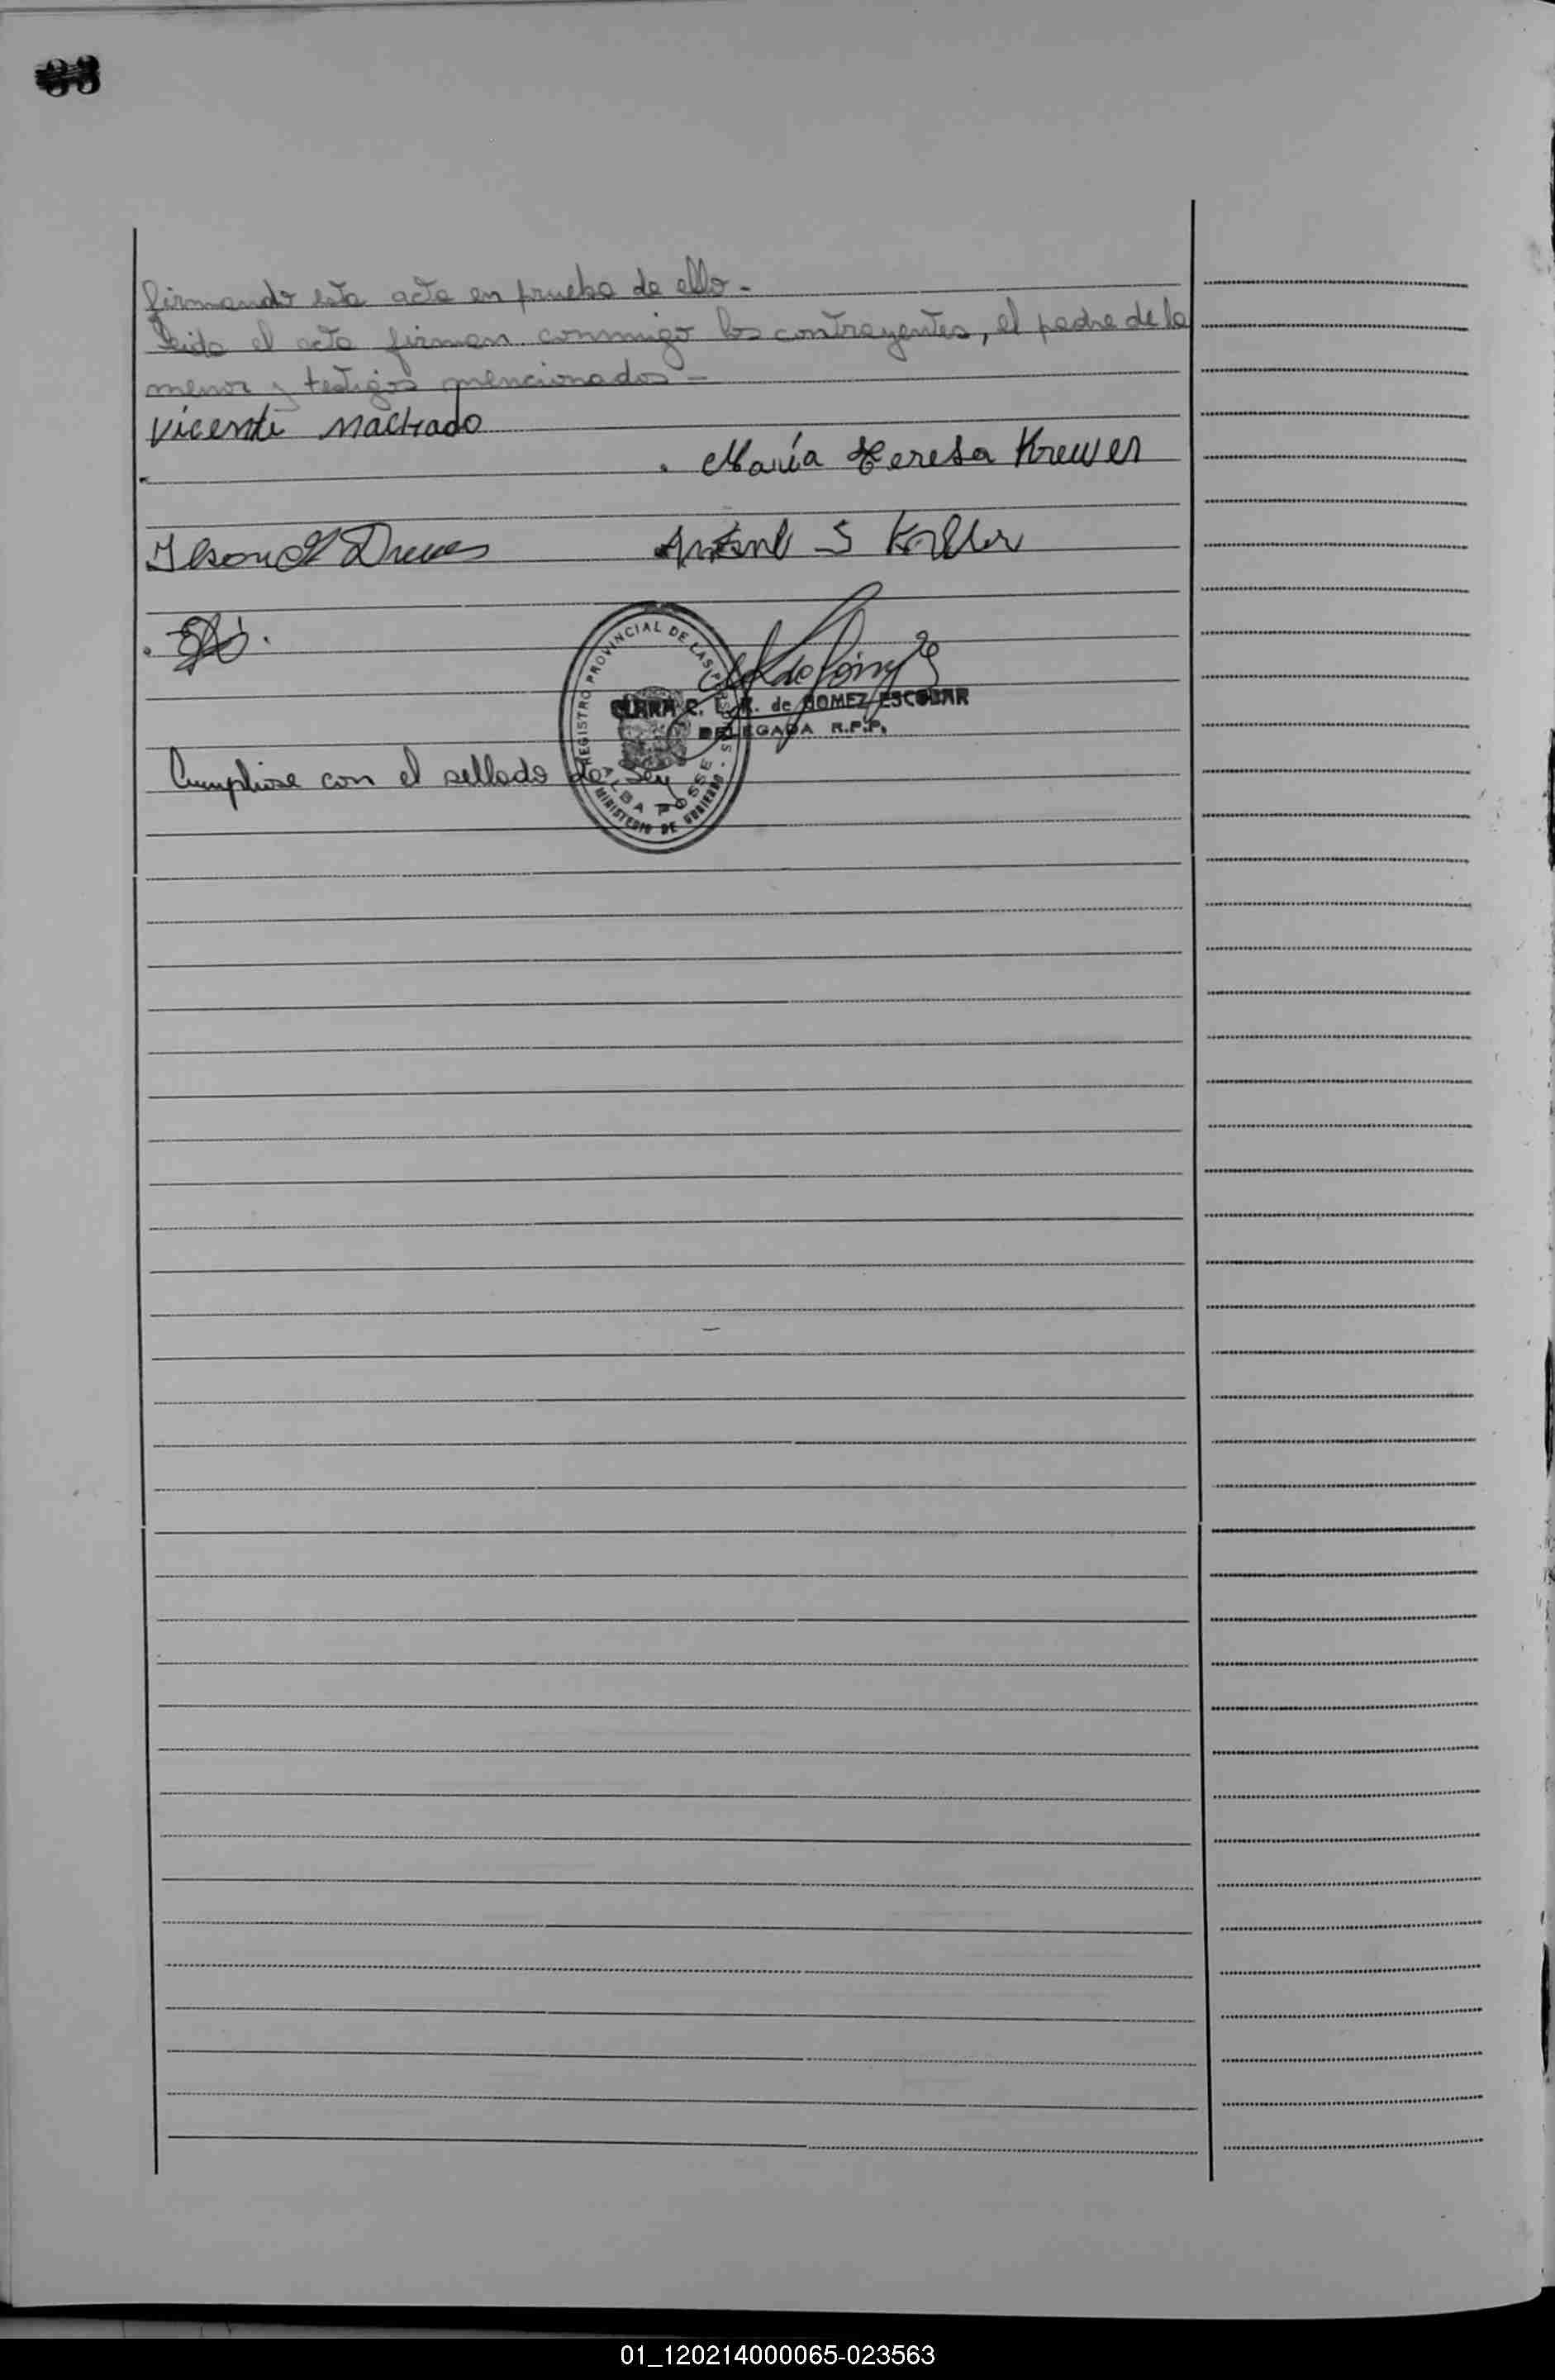 firmando esta acta en prueba de ello.-
Leida el acta firman conmigo los contrayentes, el padre de la
menor y testigos mencionados -
Vicente Machado
María Teresa Krewer
S Koller
REGISTRO PROVINCIAL DE LAS PERSONAS
C. L. R. de GOMEZ ESCOBAR
DELEGADA R.P.P.
Cumpliose con el sellado de Ley
ALBA POSSE
MINISTERIO DE GOBIERNO
01_120214000065-023563